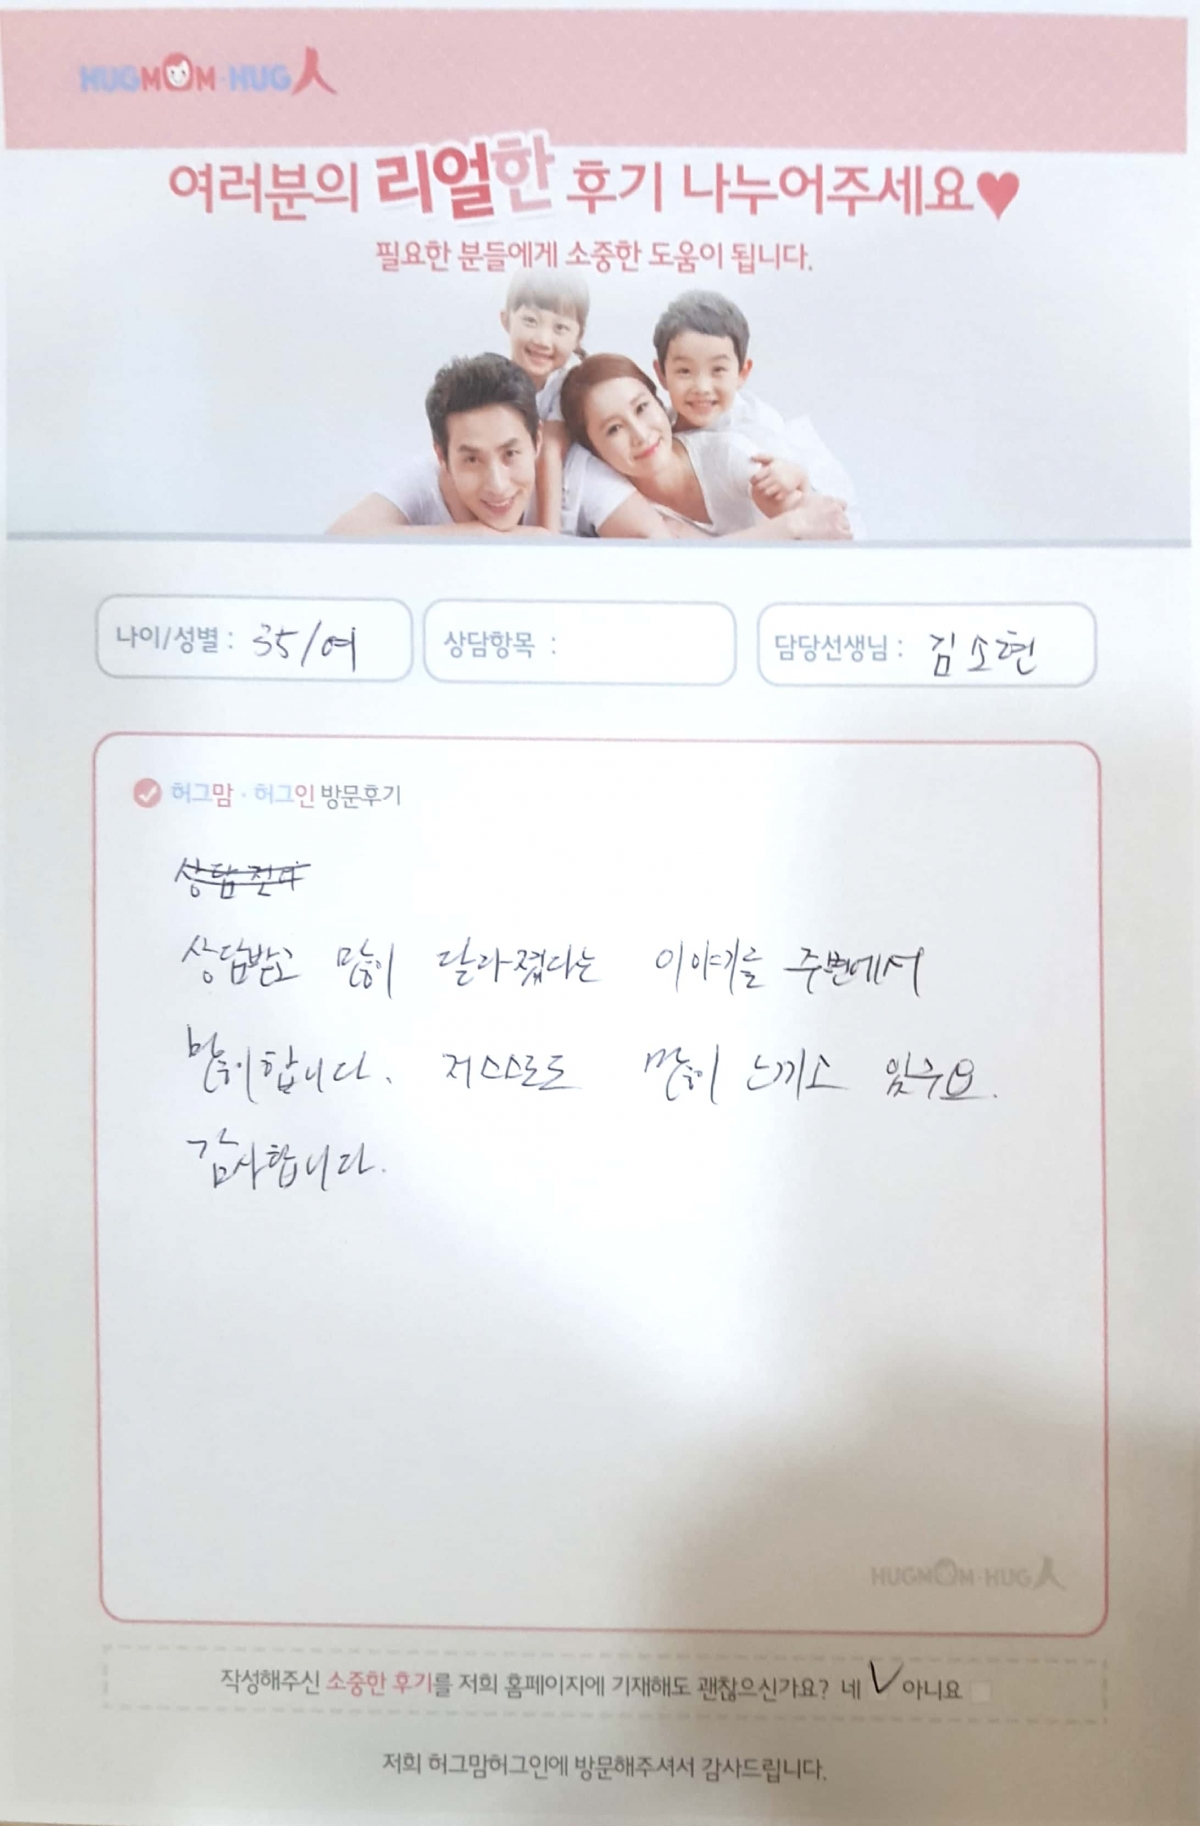 HUGMOM·HUG人
여러분의 리얼한 후기 나누어주세요♥
필요한 분들에게 소중한 도움이 됩니다.
나이/성별 : 35/여
상담항목 :
담당선생님 : 김소현
허그맘·허그인 방문후기
상담받고 많이 달라졌다는 이야기를 주변에서
많이합니다. 저스스로도 많이 느끼고 있구요.
감사합니다.
HUGMOM·HUG人
작성해주신 소중한 후기를 저희 홈페이지에 기재해도 괜찮으신가요? 네 ✓ 아니요 □
저희 허그맘허그인에 방문해주셔서 감사드립니다.